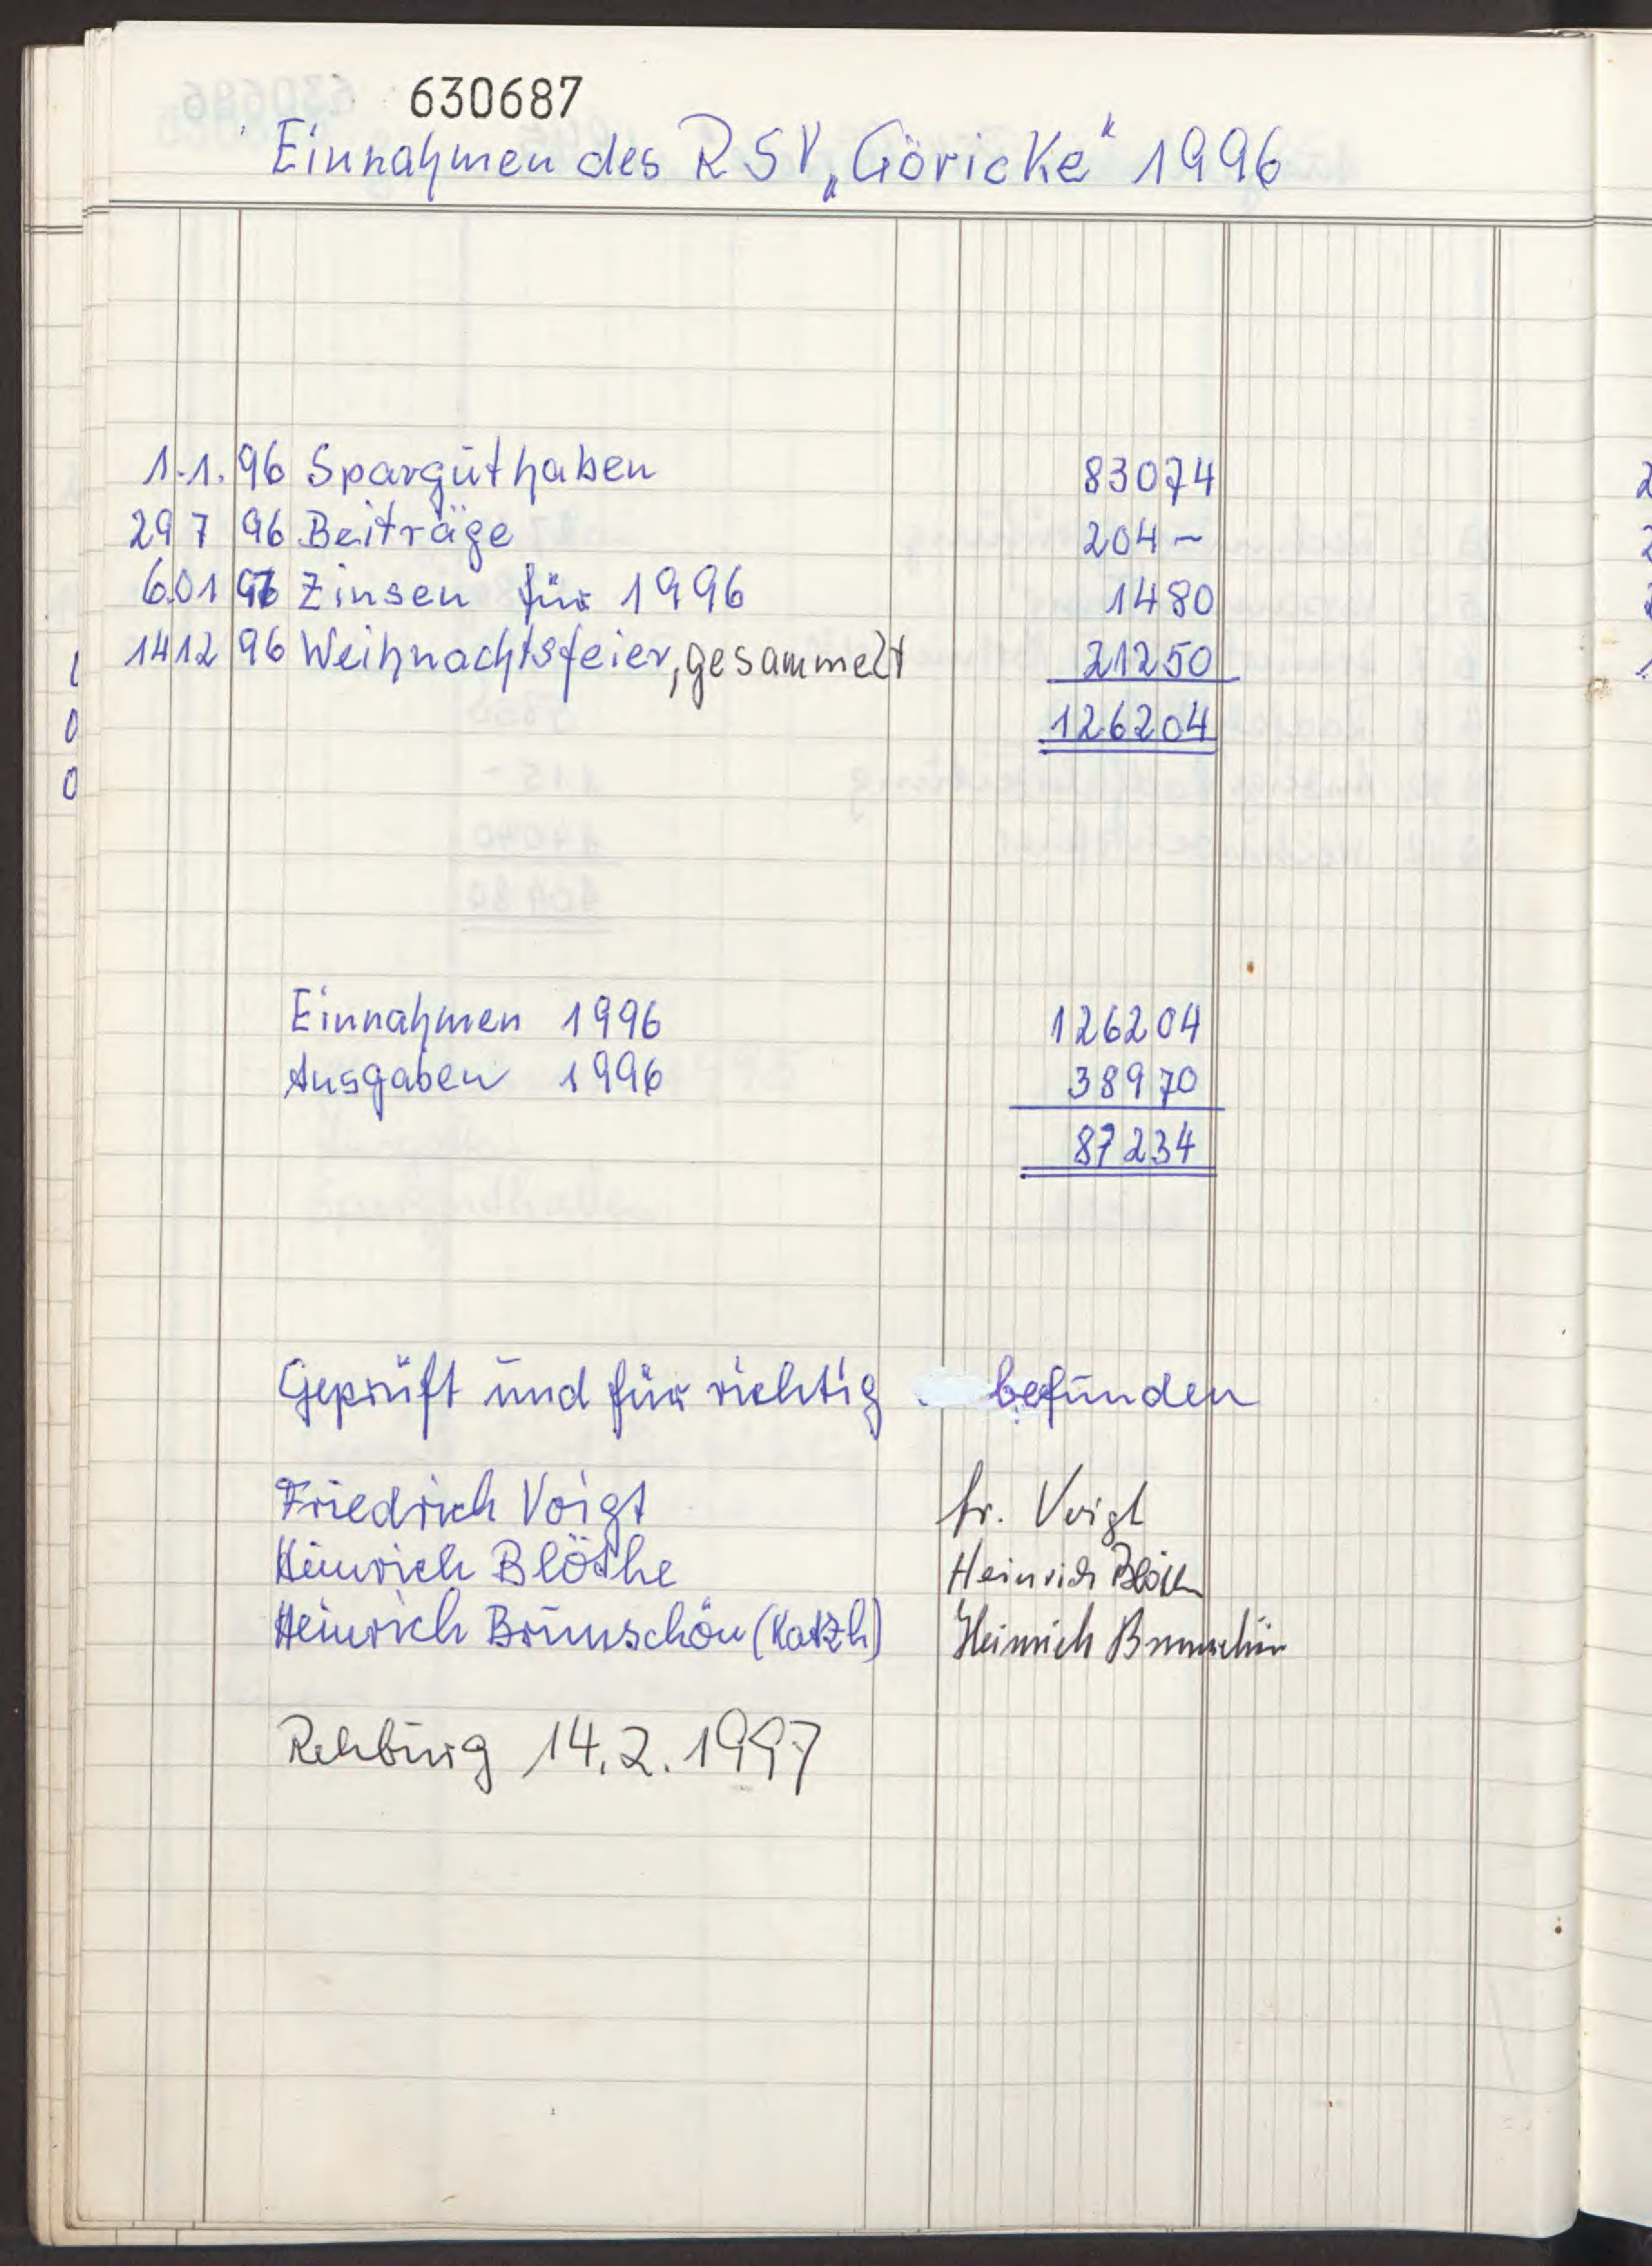 630687
Einnahmen des RSV „Göricke“ 1996
1.1.96 Sparguthaben 83074
29 7 96 Beiträge 204 –
6.01 97 Zinsen für 1996 1480
14 12 96 Weihnachtsfeier, gesammelt 21250
126204
Einnahmen 1996 126204
Ausgaben 1996 38970
87234
Geprüft und für richtig befunden
Friedrich Voigt Fr. Voigt
Heinrich Blöthe Heinrich Blöthe
Heinrich Brunschön (Katzh) Heinrich Brunschön
Rehburg 14.2.1997